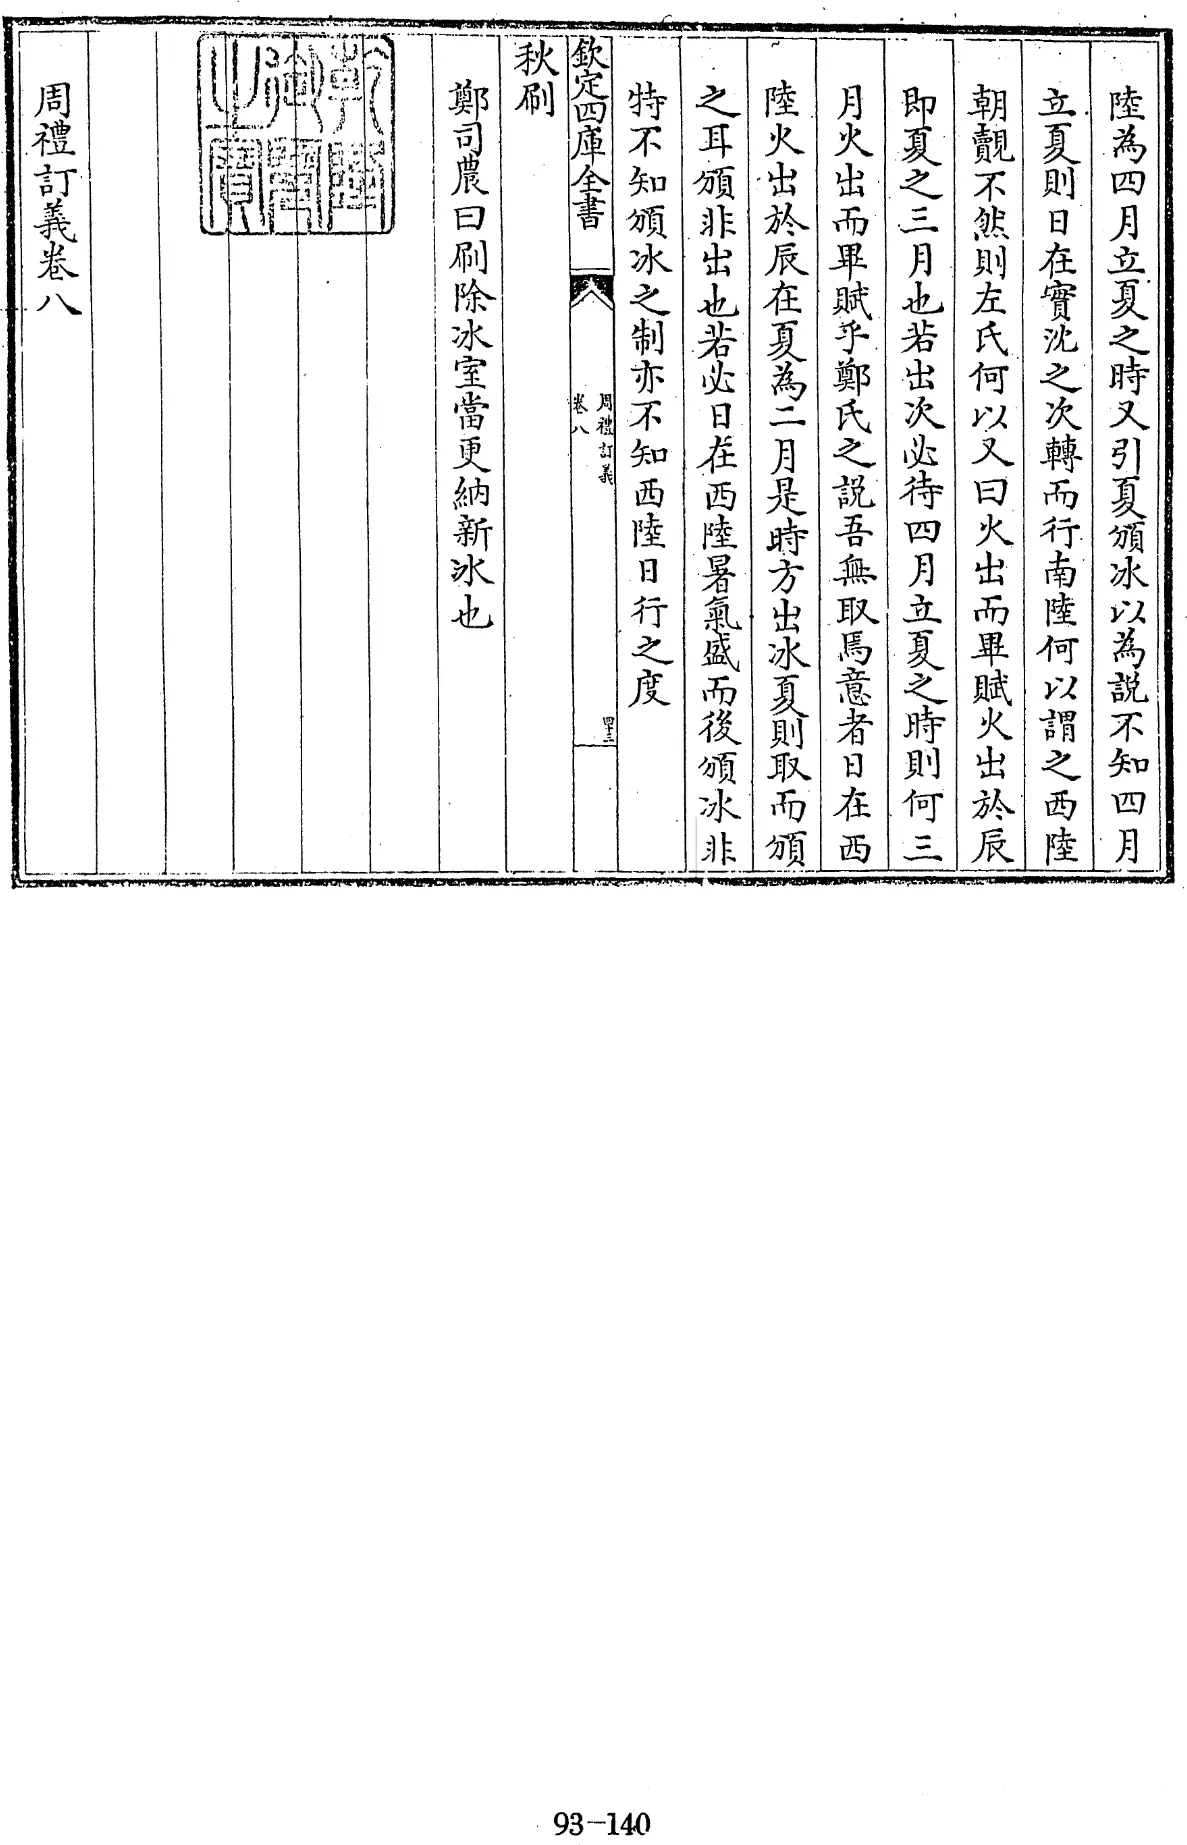 陸為四月立夏之時又引夏頒冰以為說不知四月
立夏則日在實沈之次轉而行南陸何以謂之西陸
朝覿不然則左氏何以又曰火出而畢賦火出於辰
即夏之三月也若出次必待四月立夏之時則何三
月火出而畢賦乎鄭氏之說吾無取焉意者日在西
陸火出於辰在夏為二月是時方出冰夏則取而頒
之耳頒非出也若必日在西陸暑氣盛而後頒冰非
特不知頒冰之制亦不知西陸日行之度
欽定四庫全書
周禮訂義
卷八
四十三
秋刷
鄭司農曰刷除冰室當更納新冰也
乾隆御覽之寶
周禮訂義卷八
93-140